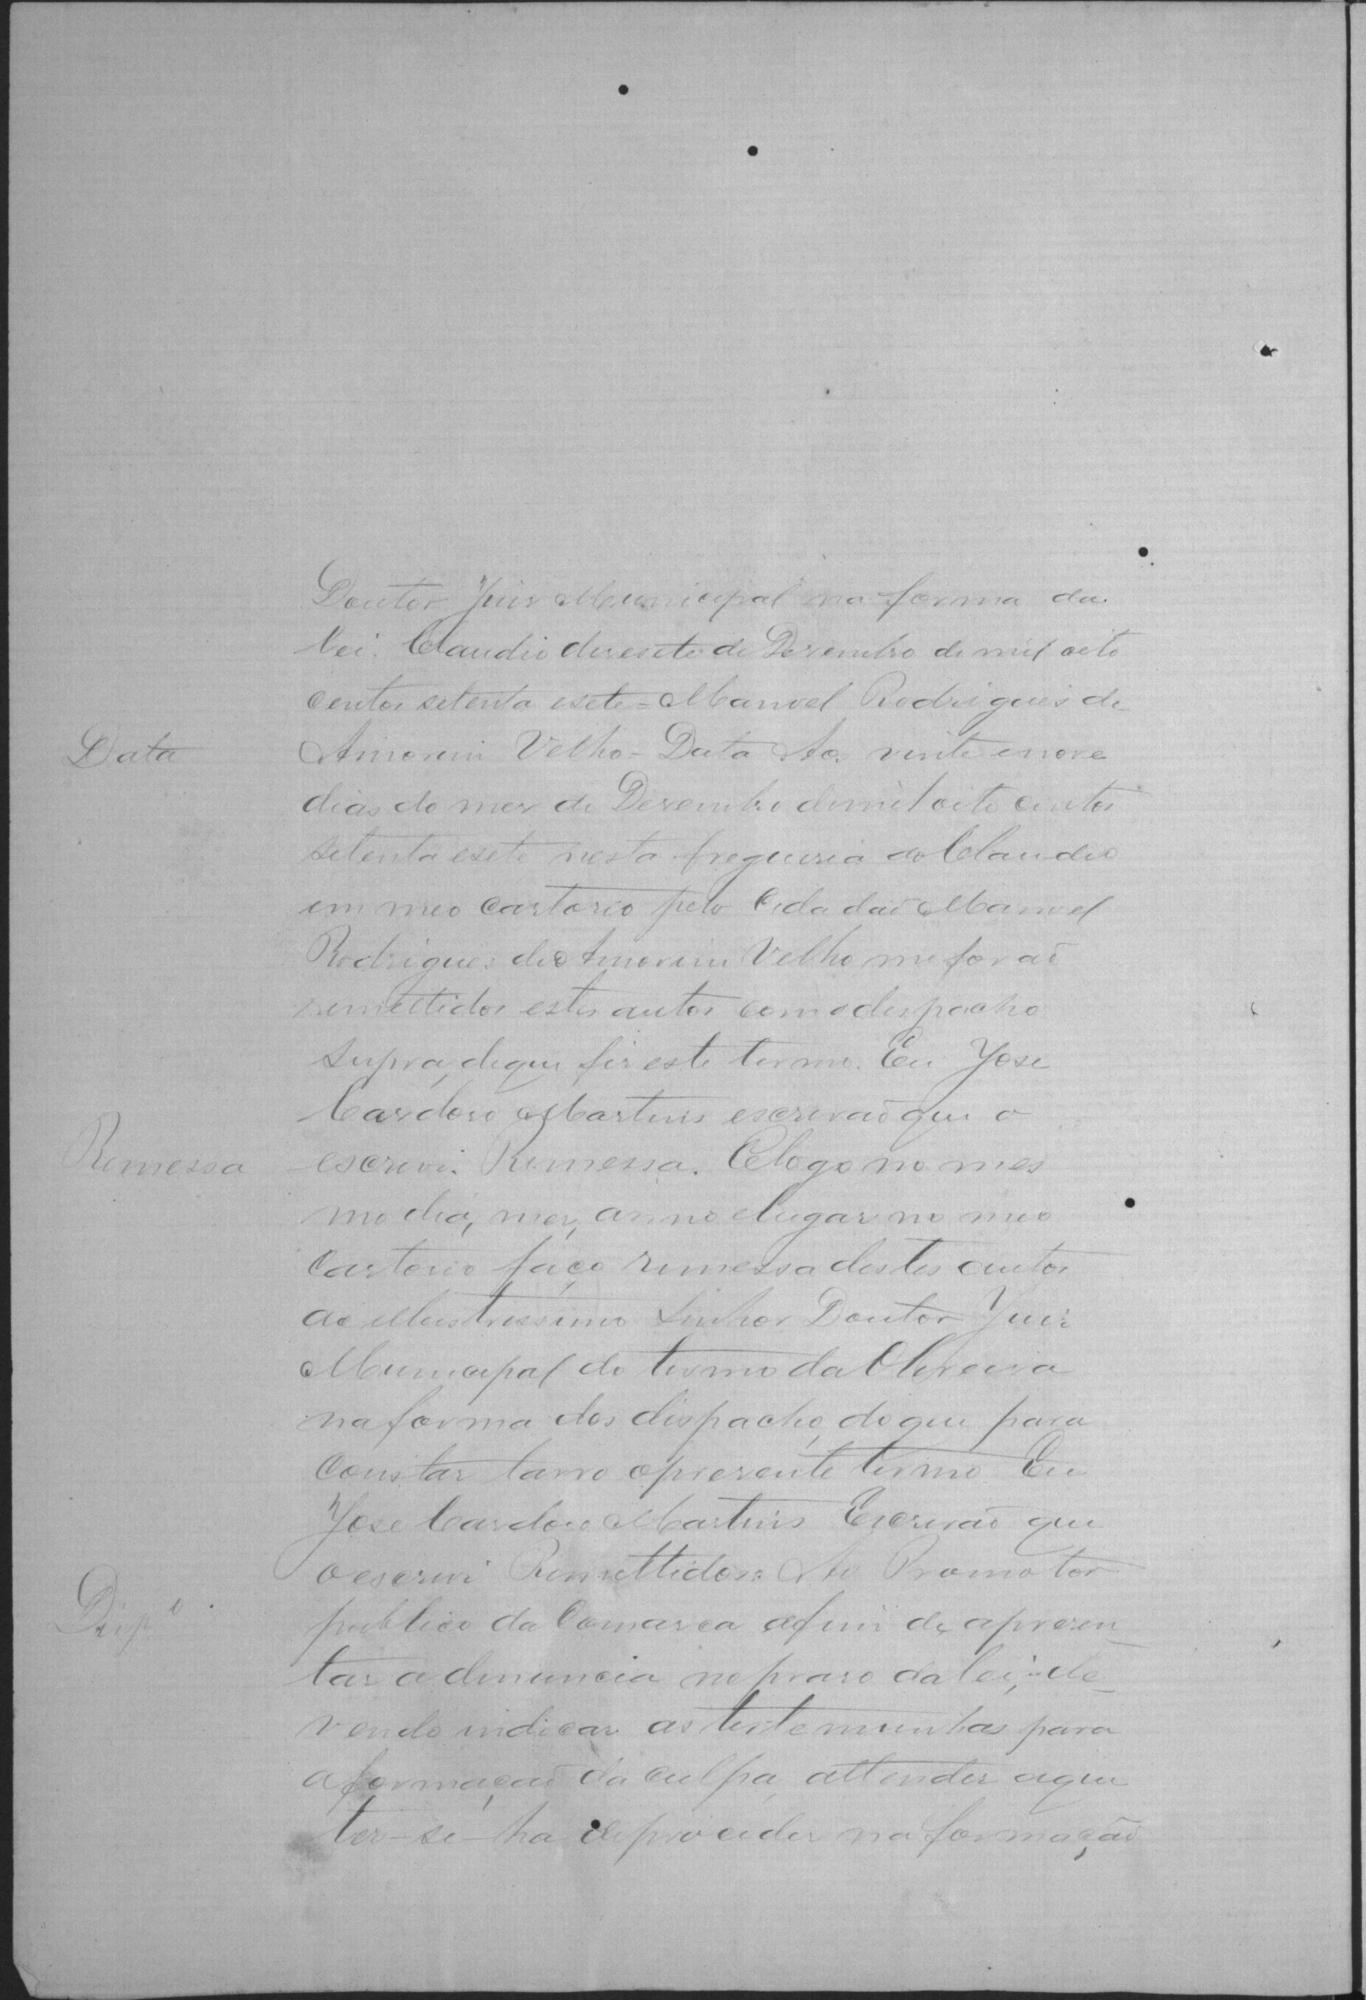 Doutor Juiz Municipal na forma da
lei. Claudio deresete de Dezembro de mil oito
centos setenta esete = Manoel Rodrigues de
Data
Amorim Velho - Data Aos vinte enove
dias do mez de Dezembro de mil oito centos
setenta esete nesta freguezia do Claudio
em meo cartorio pelo Cidadaõ Manoel
Rodrigues de Amorim Velho me foraõ
remettidos estes autos com o despacho
supra, de que fiz este termo. Eu Jose
Cardozo Martins escrivaõ que o
Remessa
escrevi. Remessa. E logo no mes
mo dia, mez, anno e lugar no meo
Cartorio faço remessa destes autos
ao Illustrissimo Senhor Doutor Juiz
Municipal do termo da Oliveira
na forma dos dispacho, do que para
Constar lavro o prezente termo Eu
Jose Cardozo Martins Escrivaõ que
o escrevi Remettidos: Ao Promotor
Disp.º
publico da Comarca afim de aprezen_
tar a denuncia no prazo da lei; de_
vendo indicar as testemunhas para
a formaçaõ da culpa, attender aque
ter-se-ha de proceder na formação